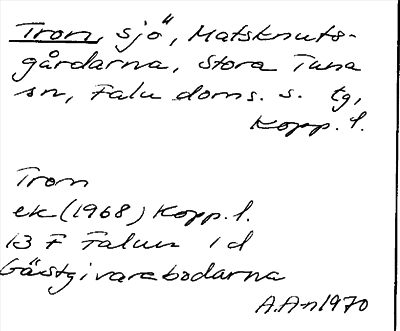 Tron, sjö, Matsknuts-
gårdarna, Stora Tuna
sn, Falu doms. s. tg,
Kopp. l.
Tron
ek (1968) Kopp. l.
13 F Falun 1 d
Gästgivarebodarna
A.An 1970